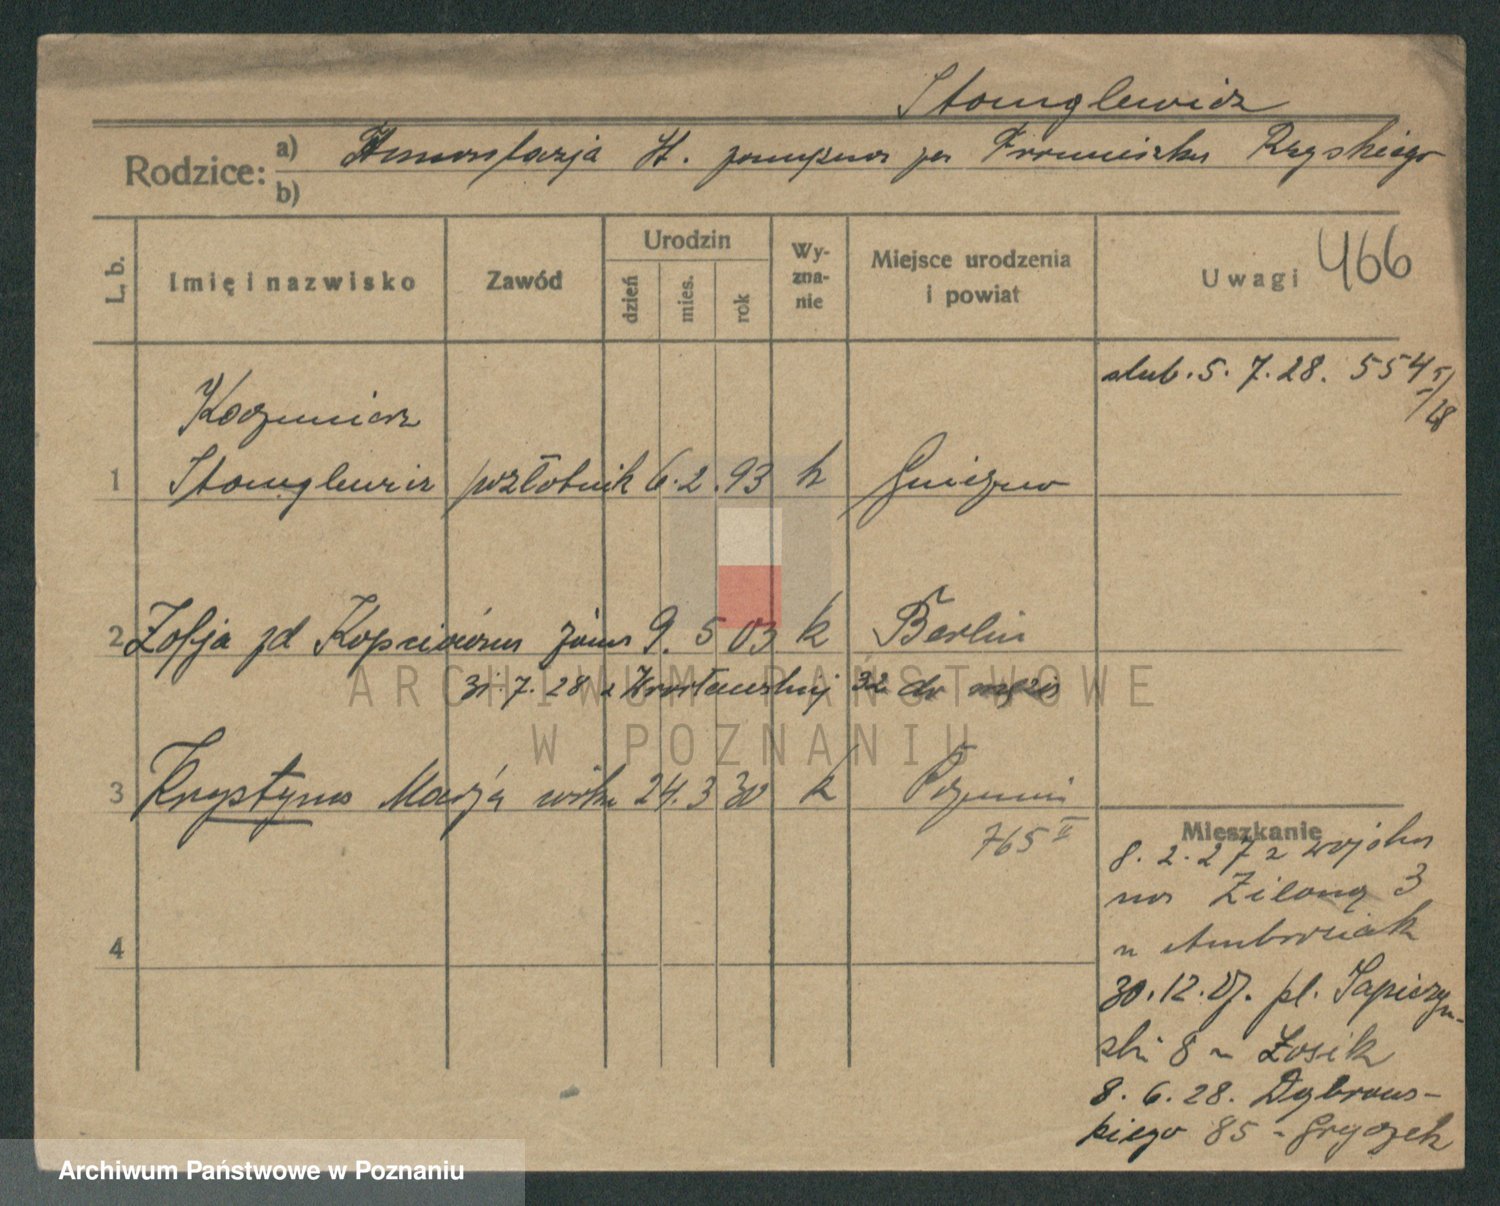 Stanglewicz
Rodzice: a) Anastazja St. zamężna za Franciszka Rzyskiego
b)
L. b. Imię i nazwisko Zawód Urodzin dzień mies. rok Wyznanie Miejsce urodzenia i powiat Uwagi 466
ślub. 5. 7. 28. 554
Kazimierz
1 Stanglewicz pozłotnik 6. 2. 93 k Gniezno
2 Zofja zd żona 9. 5 03 k Berlin
31. 7. 28 z Wrocławskiej 32 do męża
3 Krystyna Marja córka 24. 3 30 k Poznań
765 II
4
Mieszkanie
8. 2. 27 z wojska
na Zieloną 3
u Ambroziak
30. 12. 27. pl. Sapieżyń-
ski 8 u Łosik
8. 6. 28. Dąbrows-
kiego 85 - Gryczek
ARCHIWUM PAŃSTWOWE
W POZNANIU
Archiwum Państwowe w Poznaniu